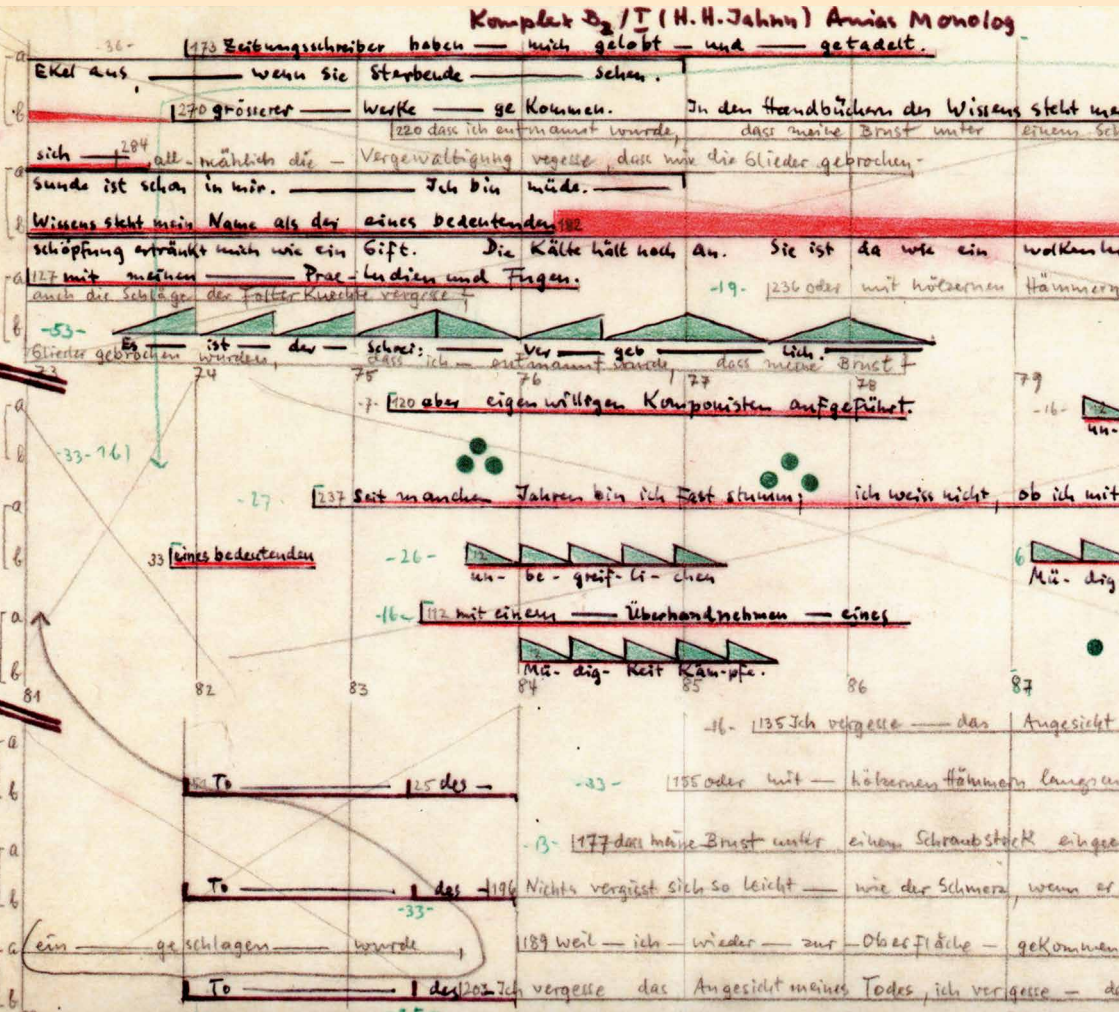 Komplex B₂/I (H.H. Jahnn) Anias Monolog
-36- 173 Zeitungsschreiber haben — mich gelobt — und — getadelt.
a
Ekel aus, — wenn sie Sterbende — sehen.
b 270 grösserer — werke — ge kommen. In den Handbüchern des Wissens steht me
220 dass ich entmannt wurde, dass meine Brust unter einem Sch
sich — 284 all-mählich die — Vergewaltigung vegesse, dass mir die Glieder gebrochen-
a
Sunde ist schon in mir. — Ich bin müde. —
b Wissens steht mein Name als der eines bedeutenden 182
schöpfung ertränkt mich wie ein Gift. Die Kälte hält noch an. Sie ist da wie ein wolken
a 127 mit meinen — Prae-ludien und Fugen.
-19- 236 oder mit hölzernen Hämmern
auch die Schläge der Folter Knechte vergesse
b -53-
Es — ist — der — Schrei: — Ver — geb — lich.
Glieder gebrochen wurden, dass ich — entmannt wurde, dass meine Brust
73 74 75 76 77 78 79
a -7- 120 aber eigenwilligen Komponisten aufgeführt. -16- 12
un-
b -33- 161
a -27- 237 Seit manchen Jahren bin ich Fast stumm; ich weiss nicht, ob ich mit
b 33 eines bedeutenden -26- 12 6
un- be- greif- li- chen Mü- dig
a -16- 112 mit einem — Überhandnehmen — eines
12
Mü- dig- Keit Käm-pfe.
b
81 82 83 84 85 86 87
a -16- 135 Ich vergesse — das Angesicht
b To — 25 des — -33- 155 oder mit — hölzernen Hämmern langsa
a -13- 177 dass meine Brust unter einem Schraubstock einge
b To — des — 196 Nichts vergisst sich so leicht — wie der Schmerz, wenn er
-33-
a ein — ge schlagen — wurde, 189 weil — ich — wieder — zur — Oberfläche — gekommen
b To — des 203 Ich vergesse das Angesicht meines Todes, ich vergesse — da